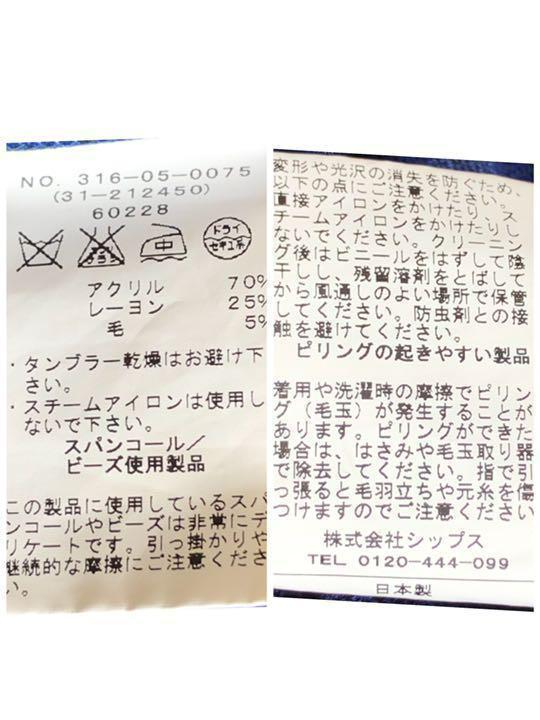 NO. 316-05-0075
(31-212450)
60228
ドライ
セキユ系
中
アクリル 70%
レーヨン 25%
毛 5%
・タンブラー乾燥はお避け下
さい。
・スチームアイロンは使用し
ないで下さい。
スパンコール／
ビーズ使用製品
この製品に使用しているスパ
ンコールやビーズは非常にデ
リケートです。引っ掛かりや
継続的な摩擦にご注意くださ
い。
変形や光沢の消失を防ぐため、
以下の点にご注意ください。
直接アイロンをかけたり、ス
チームアイロンをかけたりし
ないでください。クリーニン
グ後はビニールをはずして陰
干しし、残留溶剤をとばして
から風通しのよい場所で保管
してください。防虫剤との接
触を避けてください。
ピリングの起きやすい製品
着用や洗濯時の摩擦でピリン
グ（毛玉）が発生することが
あります。ピリングができた
場合は、はさみや毛玉取り器
で除去してください。指で引
っ張ると毛羽立ちや元糸を傷
つけますのでご注意ください
株式会社シップス
TEL 0120-444-099
日本製